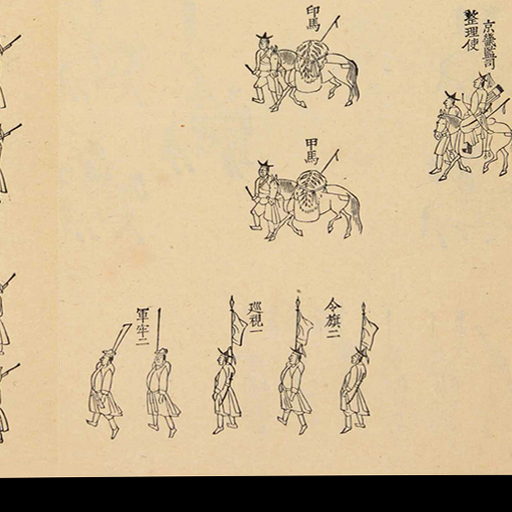 京畿監司
整理使
印馬
甲馬
令旗二
巡視一
軍牢二